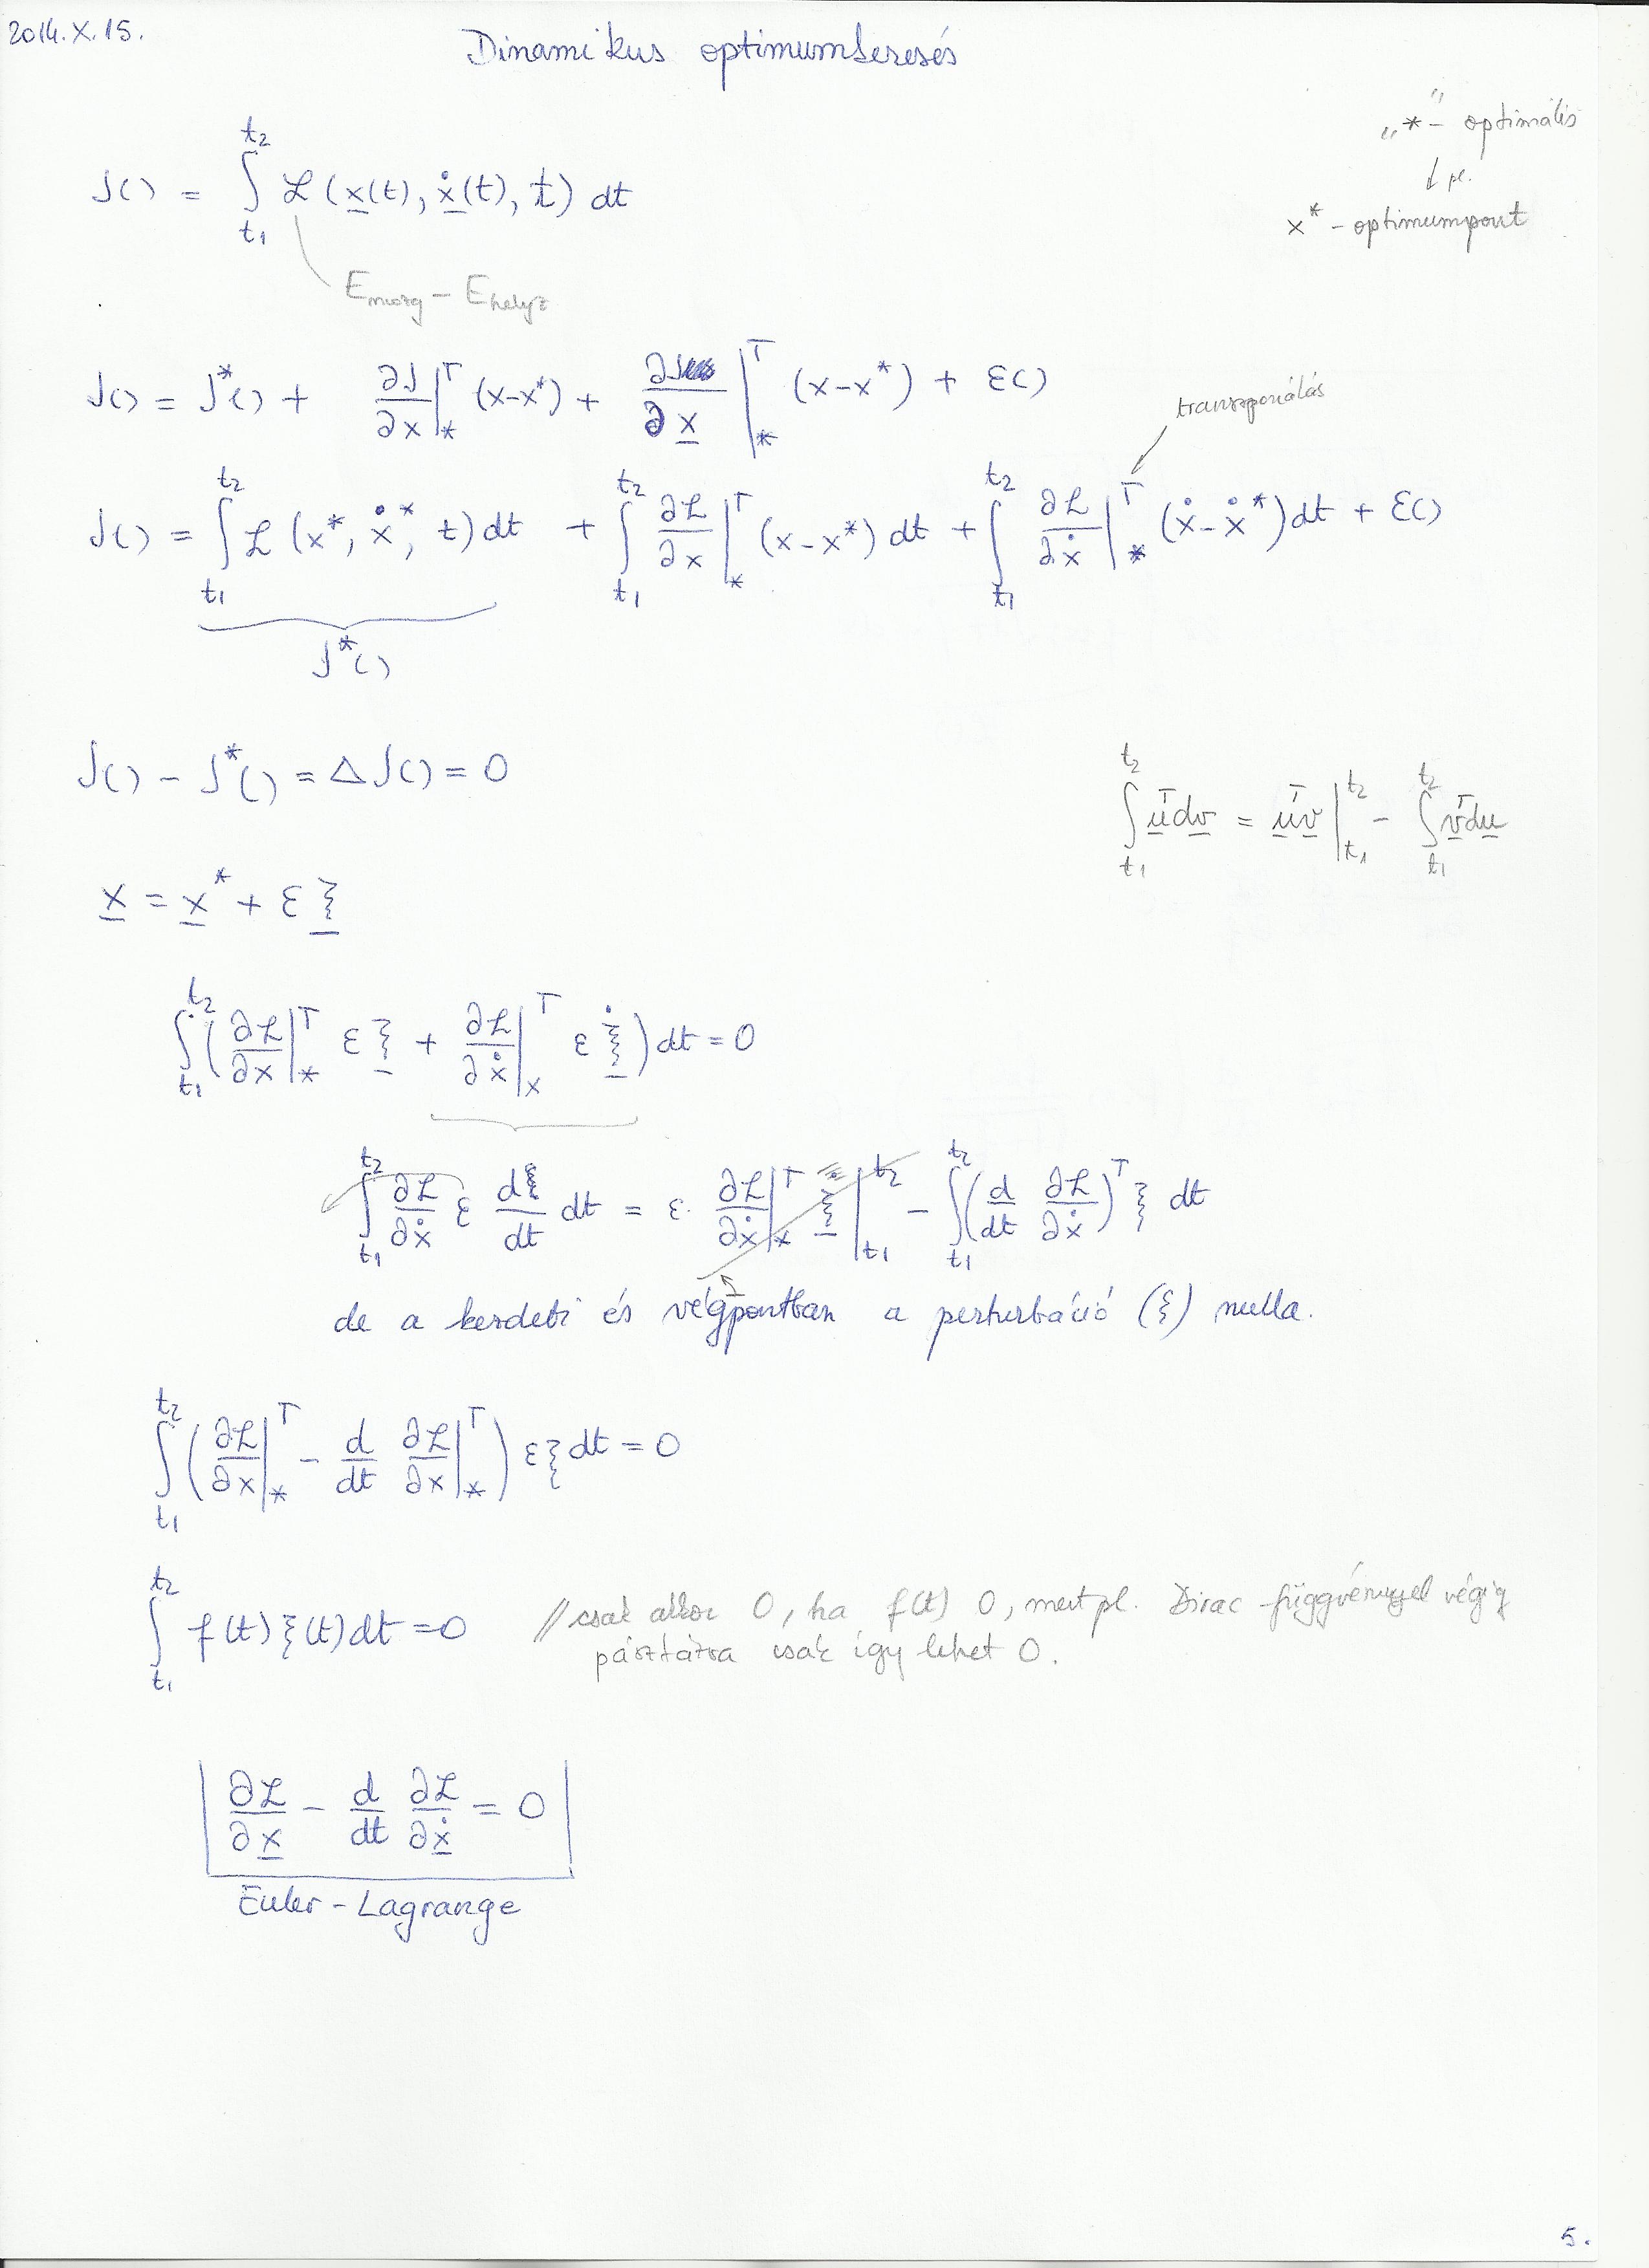 2014. X. 15.
Dinamikus optimumkeresés
„*" – optimális
↓ pl.
x* – optimumpont
J() = ∫_{t1}^{t2} ℒ(x(t), ẋ(t), t) dt
E_mozg – E_helyz
J() = J*() + ∂J/∂x|_*^T (x-x*) + ∂J/∂x|_*^T (x-x*) + ε()
transzponálás
J() = ∫_{t1}^{t2} ℒ(x*, ẋ*, t) dt + ∫_{t1}^{t2} ∂ℒ/∂x|_*^T (x-x*) dt + ∫_{t1}^{t2} ∂ℒ/∂ẋ|_*^T (ẋ-ẋ*) dt + ε()
J*()
J() – J*() = ΔJ() = 0
∫_{t1}^{t2} u^T dv = u^T v|_{t1}^{t2} – ∫_{t1}^{t2} v^T du
x = x* + ε ξ
∫_{t1}^{t2} (∂ℒ/∂x|_*^T ε ξ + ∂ℒ/∂ẋ|_x^T ε ξ̇) dt = 0
∫_{t1}^{t2} ∂ℒ/∂ẋ ε dξ/dt dt = ε · ∂ℒ/∂ẋ|_x^T ξ|_{t1}^{t2} – ∫_{t1}^{t2} (d/dt ∂ℒ/∂ẋ)^T ξ dt
de a kezdeti és végpontban a perturbáció (ξ) nulla.
∫_{t1}^{t2} (∂ℒ/∂x|_*^T – d/dt ∂ℒ/∂x|_*^T) ε ξ dt = 0
∫_{t1}^{t2} f(t) ξ(t) dt = 0 // csak akkor 0, ha f(t) 0, mert pl. Dirac függvénnyel végig
pásztázva csak így lehet 0.
∂ℒ/∂x – d/dt ∂ℒ/∂ẋ = 0
Euler-Lagrange
5.